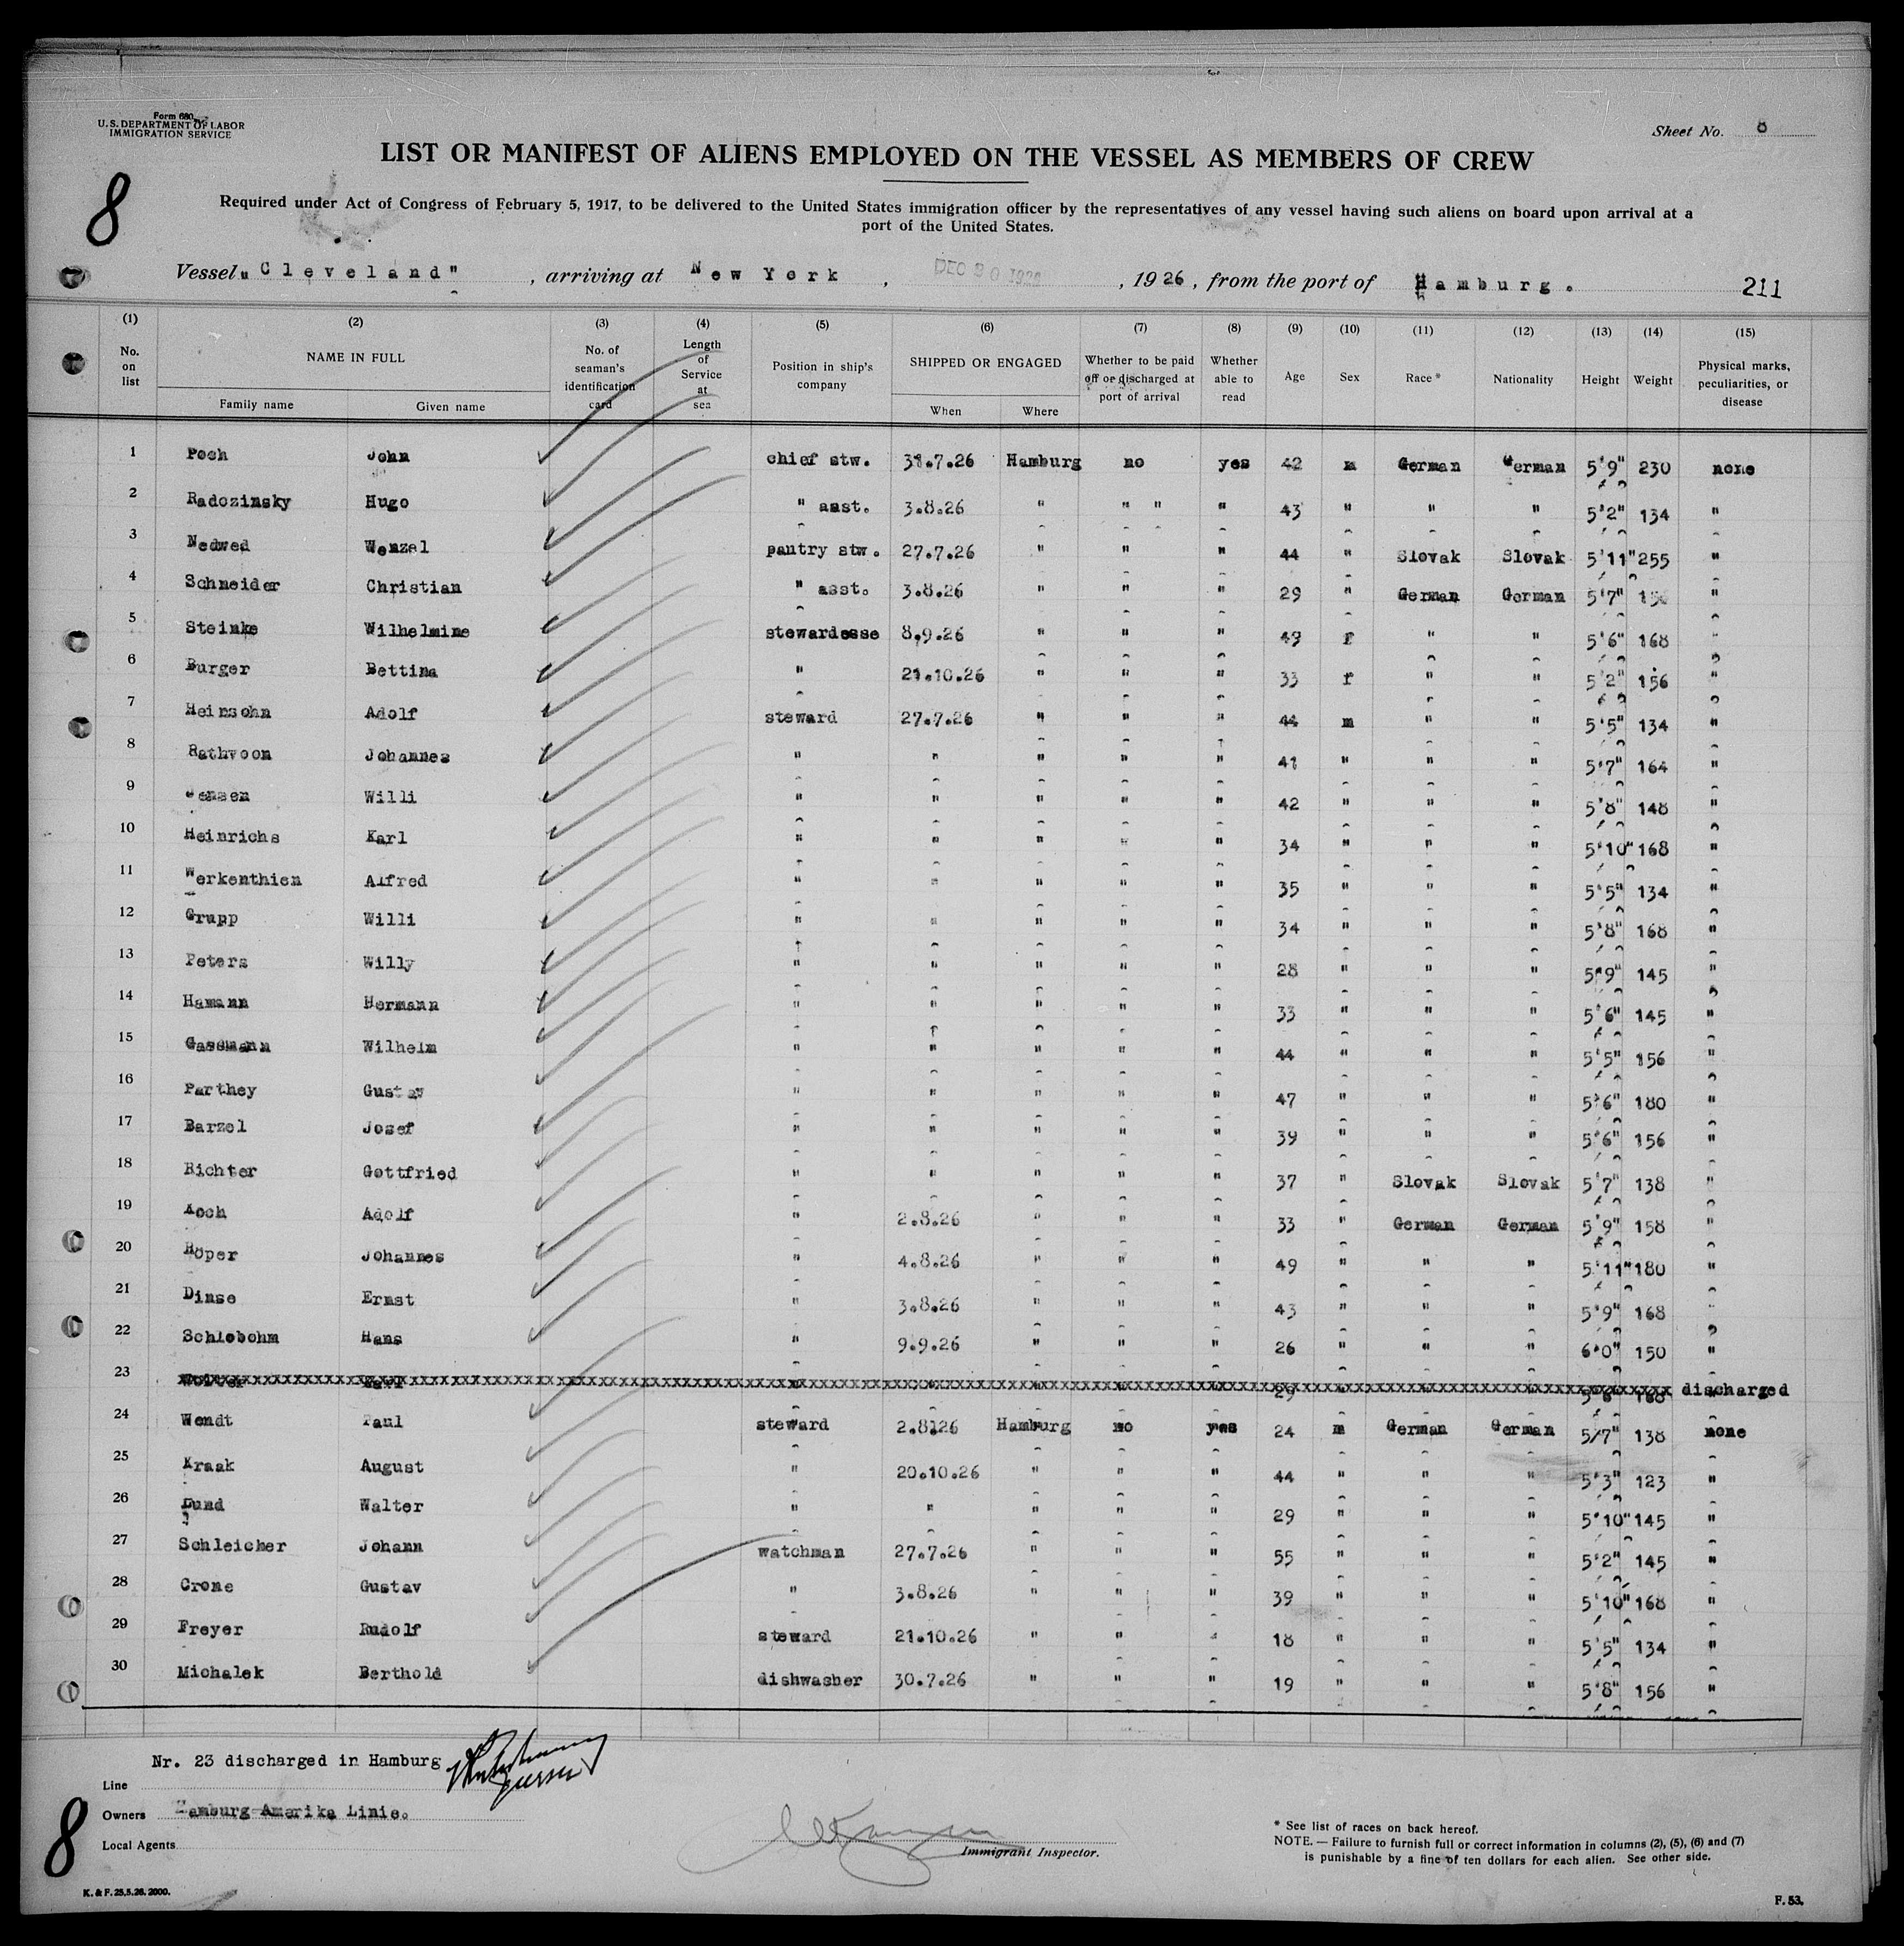 Form 680
U. S. DEPARTMENT OF LABOR
IMMIGRATION SERVICE
Sheet No. 8
LIST OR MANIFEST OF ALIENS EMPLOYED ON THE VESSEL AS MEMBERS OF CREW
8
Required under Act of Congress of February 5, 1917, to be delivered to the United States immigration officer by the representatives of any vessel having such aliens on board upon arrival at a
port of the United States.
Vessel "Cleveland", arriving at New York, DEC 30 1926, 1926, from the port of Hamburg. 211
(1) (2) (3) (4) (5) (6) (7) (8) (9) (10) (11) (12) (13) (14) (15)
No. on list NAME IN FULL Family name Given name No. of seaman's identification card Length of Service at sea Position in ship's company SHIPPED OR ENGAGED When Where Whether to be paid off or discharged at port of arrival Whether able to read Age Sex Race * Nationality Height Weight Physical marks, peculiarities, or disease
1 Poch John chief stw. 31.7.26 Hamburg no yes 42 m German German 5'9" 230 none
2 Radozinsky Hugo " asst. 3.8.26 " " " " 43 " " " 5'2" 134 "
3 Nedwed Wenzel pantry stw. 27.7.26 " " " 44 " Slovak Slovak 5'11" 255 "
4 Schneider Christian " asst. 3.8.26 " " " 29 " German German 5'7" "
5 Steinke Wilhelmine stewardesse 8.9.26 " " " 49 f " " 5'6" 168 "
6 Burger Bettina " 21.10.26 " " " 33 f " " 5'2" 156 "
7 Heinsohn Adolf steward 27.7.26 " " " 44 m " " 5'5" 134 "
8 Rathvoon Johannes " " " " " 41 " " " 5'7" 164 "
9 Jensen Willi " " " " " 42 " " " 5'8" 148 "
10 Heinrichs Karl " " " " " 34 " " " 5'10" 168 "
11 Werkenthien Alfred " " " " " 35 " " " 5'5" 134 "
12 Grupp Willi " " " " " 34 " " " 5'8" 168 "
13 Peters Willy " " " " " 28 " " " 5'9" 145 "
14 Hamann Hermann " " " " " 33 " " " 5'6" 145 "
15 Gassmann Wilhelm " " " " " 44 " " " 5'5" 156 "
16 Parthey Gustav " " " " " 47 " " " 5'6" 180 "
17 Barzel Josef " " " " " 39 " " " 5'6" 156 "
18 Richter Gottfried " " " " " 37 " Slovak Slovak 5'7" 138 "
19 Koch Adolf " 2.8.26 " " " 33 " German German 5'9" 158 "
20 Röper Johannes " 4.8.26 " " " 49 " " " 5'11" 180 "
21 Dinse Ernst " 3.8.26 " " " 43 " " " 5'9" 168 "
22 Schlebohm Hans " 9.9.26 " " " 26 " " " 6'0" 150 "
23 29 discharged
24 Wendt Paul steward 2.8126 Hamburg no yes 24 m German German 5/7" 138 none
25 Kraak August " 20.10.26 " " " 44 " " " 5'3" 123 "
26 Lund Walter " " " " " 29 " " " 5'10" 145 "
27 Schleicher Johann watchman 27.7.26 " " " 55 " " " 5'2" 145 "
28 Crone Gustav " 3.8.26 " " " 39 " " " 5'10" 168 "
29 Freyer Rudolf steward 21.10.26 " " " 18 " " " 5'5" 134 "
30 Michalek Berthold dishwasher 30.7.26 " " " 19 " " " 5'8" 156 "
Nr. 23 discharged in Hamburg
Line
Owners Hamburg-Amerika Linie.
Local Agents
8
Immigrant Inspector.
* See list of races on back hereof.
NOTE. — Failure to furnish full or correct information in columns (2), (5), (6) and (7)
is punishable by a fine of ten dollars for each alien. See other side.
K. & F. 25.5.26. 2000.
F. 53.